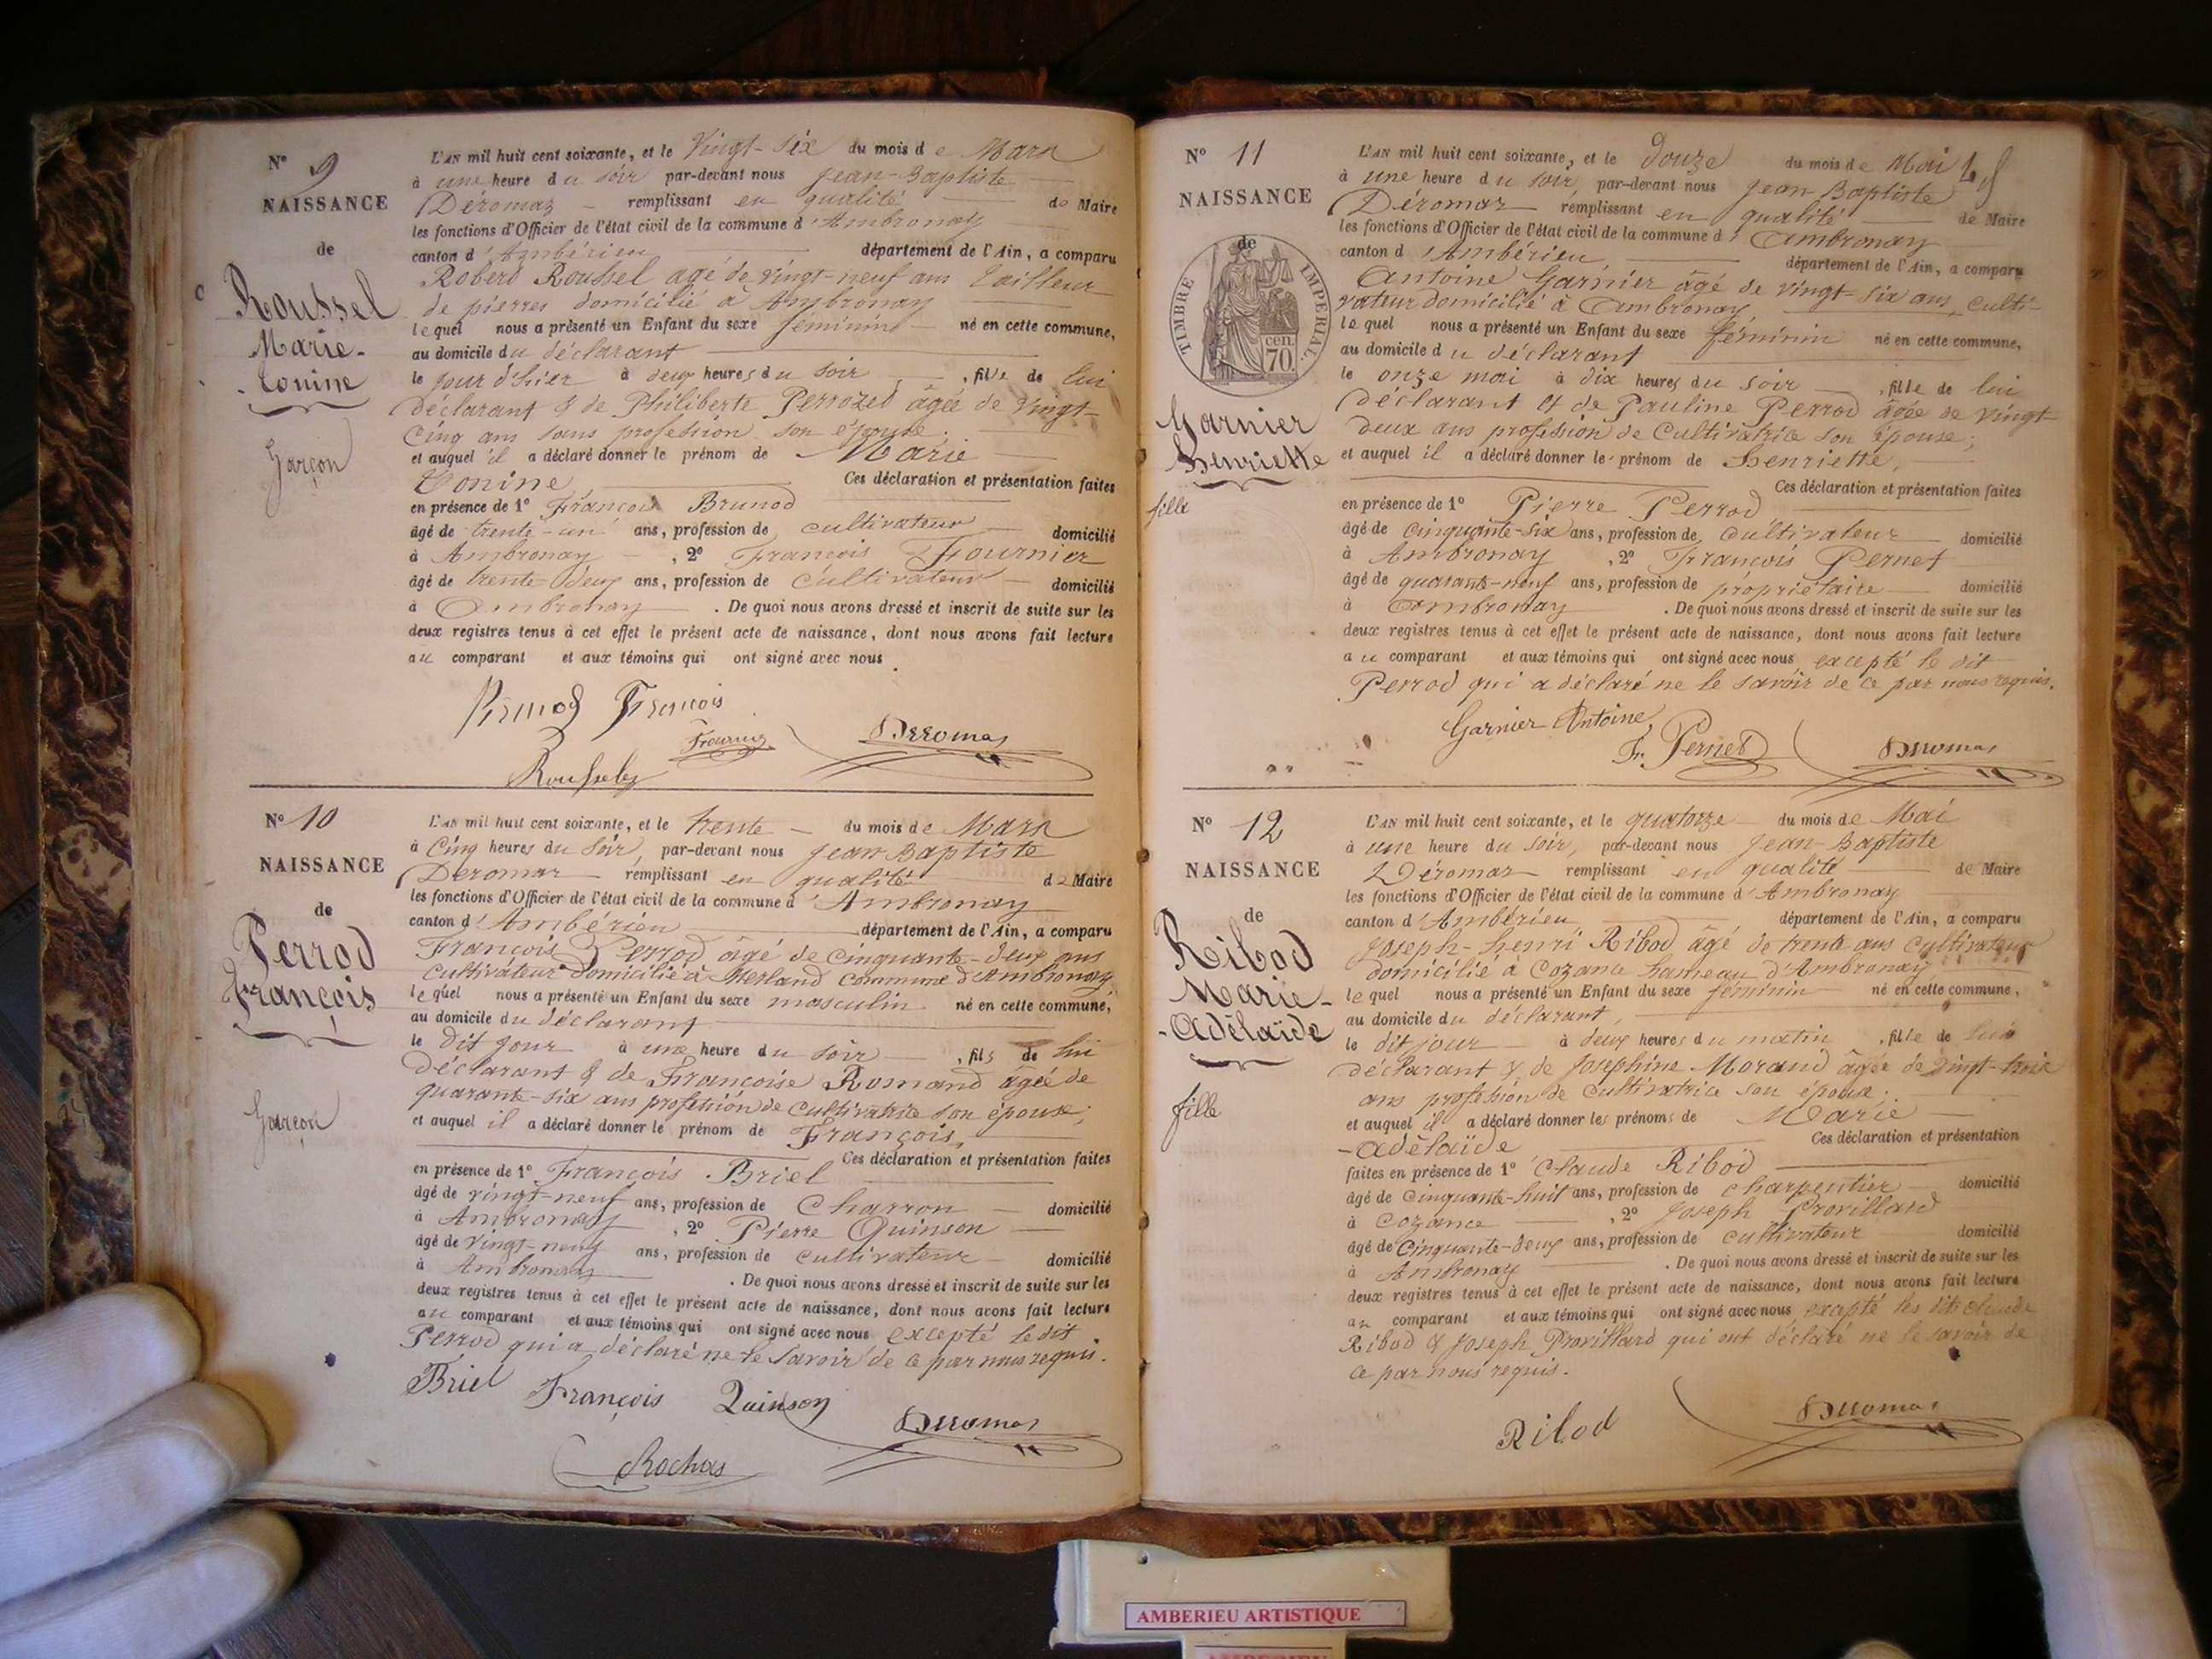 N° 9
NAISSANCE
de
Roussel
Marie-
Tonine
Garçon
L'AN mil huit cent soixante, et le Vingt-six du mois de Mars
à une heure du soir par-devant nous Jean-Baptiste
Déromas remplissant en qualité de Maire
les fonctions d'Officier de l'état civil de la commune d'Ambronay
canton d'Ambérieu département de l'Ain, a comparu
Robert Roussel agé de vingt-neuf ans tailleur
de pierres domicilié à Ambronay
lequel nous a présenté un Enfant du sexe féminine né en cette commune,
au domicile du déclarant
le jour d'hier à deux heures du soir, fille de lui
déclarant & de Philiberte Perrozet âgée de vingt-
cinq ans sans profession son épouse.
et auquel il a déclaré donner le prénom de Marie
Tonine Ces déclaration et présentation faites
en présence de 1° François Brunod
âgé de trente-un ans, profession de cultivateur domicilié
à Ambronay, 2° François Fournier
âgé de trente-deux ans, profession de cultivateur domicilié
à Ambronay. De quoi nous avons dressé et inscrit de suite sur les
deux registres tenus à cet effet le présent acte de naissance, dont nous avons fait lecture
au comparant et aux témoins qui ont signé avec nous.
Brunod François
Fournier Deromas
N° 10
NAISSANCE
de
Perrod
François
Garçon
L'AN mil huit cent soixante, et le trente du mois de Mars
à cinq heures du soir, par-devant nous Jean-Baptiste
Déromas remplissant en qualité de Maire
les fonctions d'Officier de l'état civil de la commune d'Ambronay
canton d'Ambérieu département de l'Ain, a comparu
François Perrod âgé de cinquante-deux ans
cultivateur domicilié à Merland commune d'Ambronay
lequel nous a présenté un Enfant du sexe masculin né en cette commune,
au domicile du déclarant
le dit jour à une heure du soir, fils de lui
déclarant & de Françoise Romand âgée de
quarante-six ans profession de cultivatrice son épouse;
et auquel il a déclaré donner le prénom de François,
Ces déclaration et présentation faites
en présence de 1° François Briel
âgé de vingt-neuf ans, profession de Charron domicilié
à Ambronay, 2° Pierre Quinson
âgé de vingt-neuf ans, profession de cultivateur domicilié
à Ambronay. De quoi nous avons dressé et inscrit de suite sur les
deux registres tenus à cet effet le présent acte de naissance, dont nous avons fait lecture
au comparant et aux témoins qui ont signé avec nous excepté le dit
Perrod qui a déclaré ne le savoir de ce par nous requis.
Briel François Quinson Deromas
Rochas
N° 11
NAISSANCE
de
TIMBRE IMPERIAL
cen. 70.
Garnier
Henriette
fille
L'AN mil huit cent soixante, et le douze du mois de Mai
à une heure du soir, par-devant nous Jean Baptiste
Déromas remplissant en qualité de Maire
les fonctions d'Officier de l'état civil de la commune d'Ambronay
canton d'Ambérieu département de l'Ain, a comparu
Antoine Garnier âgé de vingt-six ans, culti-
vateur domicilié à Ambronay,
lequel nous a présenté un Enfant du sexe féminin né en cette commune,
au domicile du déclarant
le onze mai à dix heures du soir, fille de lui
déclarant et de Pauline Perrod âgée de vingt-
deux ans profession de cultivatrice son épouse;
et auquel il a déclaré donner le prénom de Henriette,
Ces déclaration et présentation faites
en présence de 1° Pierre Perrod
âgé de cinquante-six ans, profession de cultivateur domicilié
à Ambronay, 2° François Pernet
âgé de quarante-neuf ans, profession de propriétaire domicilié
à Ambronay. De quoi nous avons dressé et inscrit de suite sur les
deux registres tenus à cet effet le présent acte de naissance, dont nous avons fait lecture
au comparant et aux témoins qui ont signé avec nous excepté le dit
Perrod qui a déclaré ne le savoir de ce par nous requis.
Garnier Antoine
Fr. Pernet Deromas
N° 12
NAISSANCE
de
Ribod
Marie-
-Adélaïde
fille
L'AN mil huit cent soixante, et le quatorze du mois de Mai
à une heure du soir, par-devant nous Jean-Baptiste
Déromas remplissant en qualité de Maire
les fonctions d'Officier de l'état civil de la commune d'Ambronay
canton d'Ambérieu département de l'Ain, a comparu
Joseph-henri Ribod âgé de trente ans cultivateur
domicilié à Cozance hameau d'Ambronay
lequel nous a présenté un Enfant du sexe féminin né en cette commune,
au domicile du déclarant,
le dit jour à deux heures du matin, fille de lui
déclarant & de Joséphine Morand âgée de vingt-trois
ans profession de cultivatrice son épouse;
et auquel il a déclaré donner les prénoms de Marie
-Adélaïde Ces déclaration et présentation
faites en présence de 1° Claude Ribod
âgé de cinquante-huit ans, profession de charpentier domicilié
à Cozance, 2° Joseph Provillard
âgé de cinquante-deux ans, profession de cultivateur domicilié
à Ambronay. De quoi nous avons dressé et inscrit de suite sur les
deux registres tenus à cet effet le présent acte de naissance, dont nous avons fait lecture
au comparant et aux témoins qui ont signé avec nous excepté les dits Claude
Ribod & Joseph Provillard qui ont déclaré ne le savoir de
ce par nous requis.
Ribod Deromas
AMBERIEU ARTISTIQUE
AMBERIEU